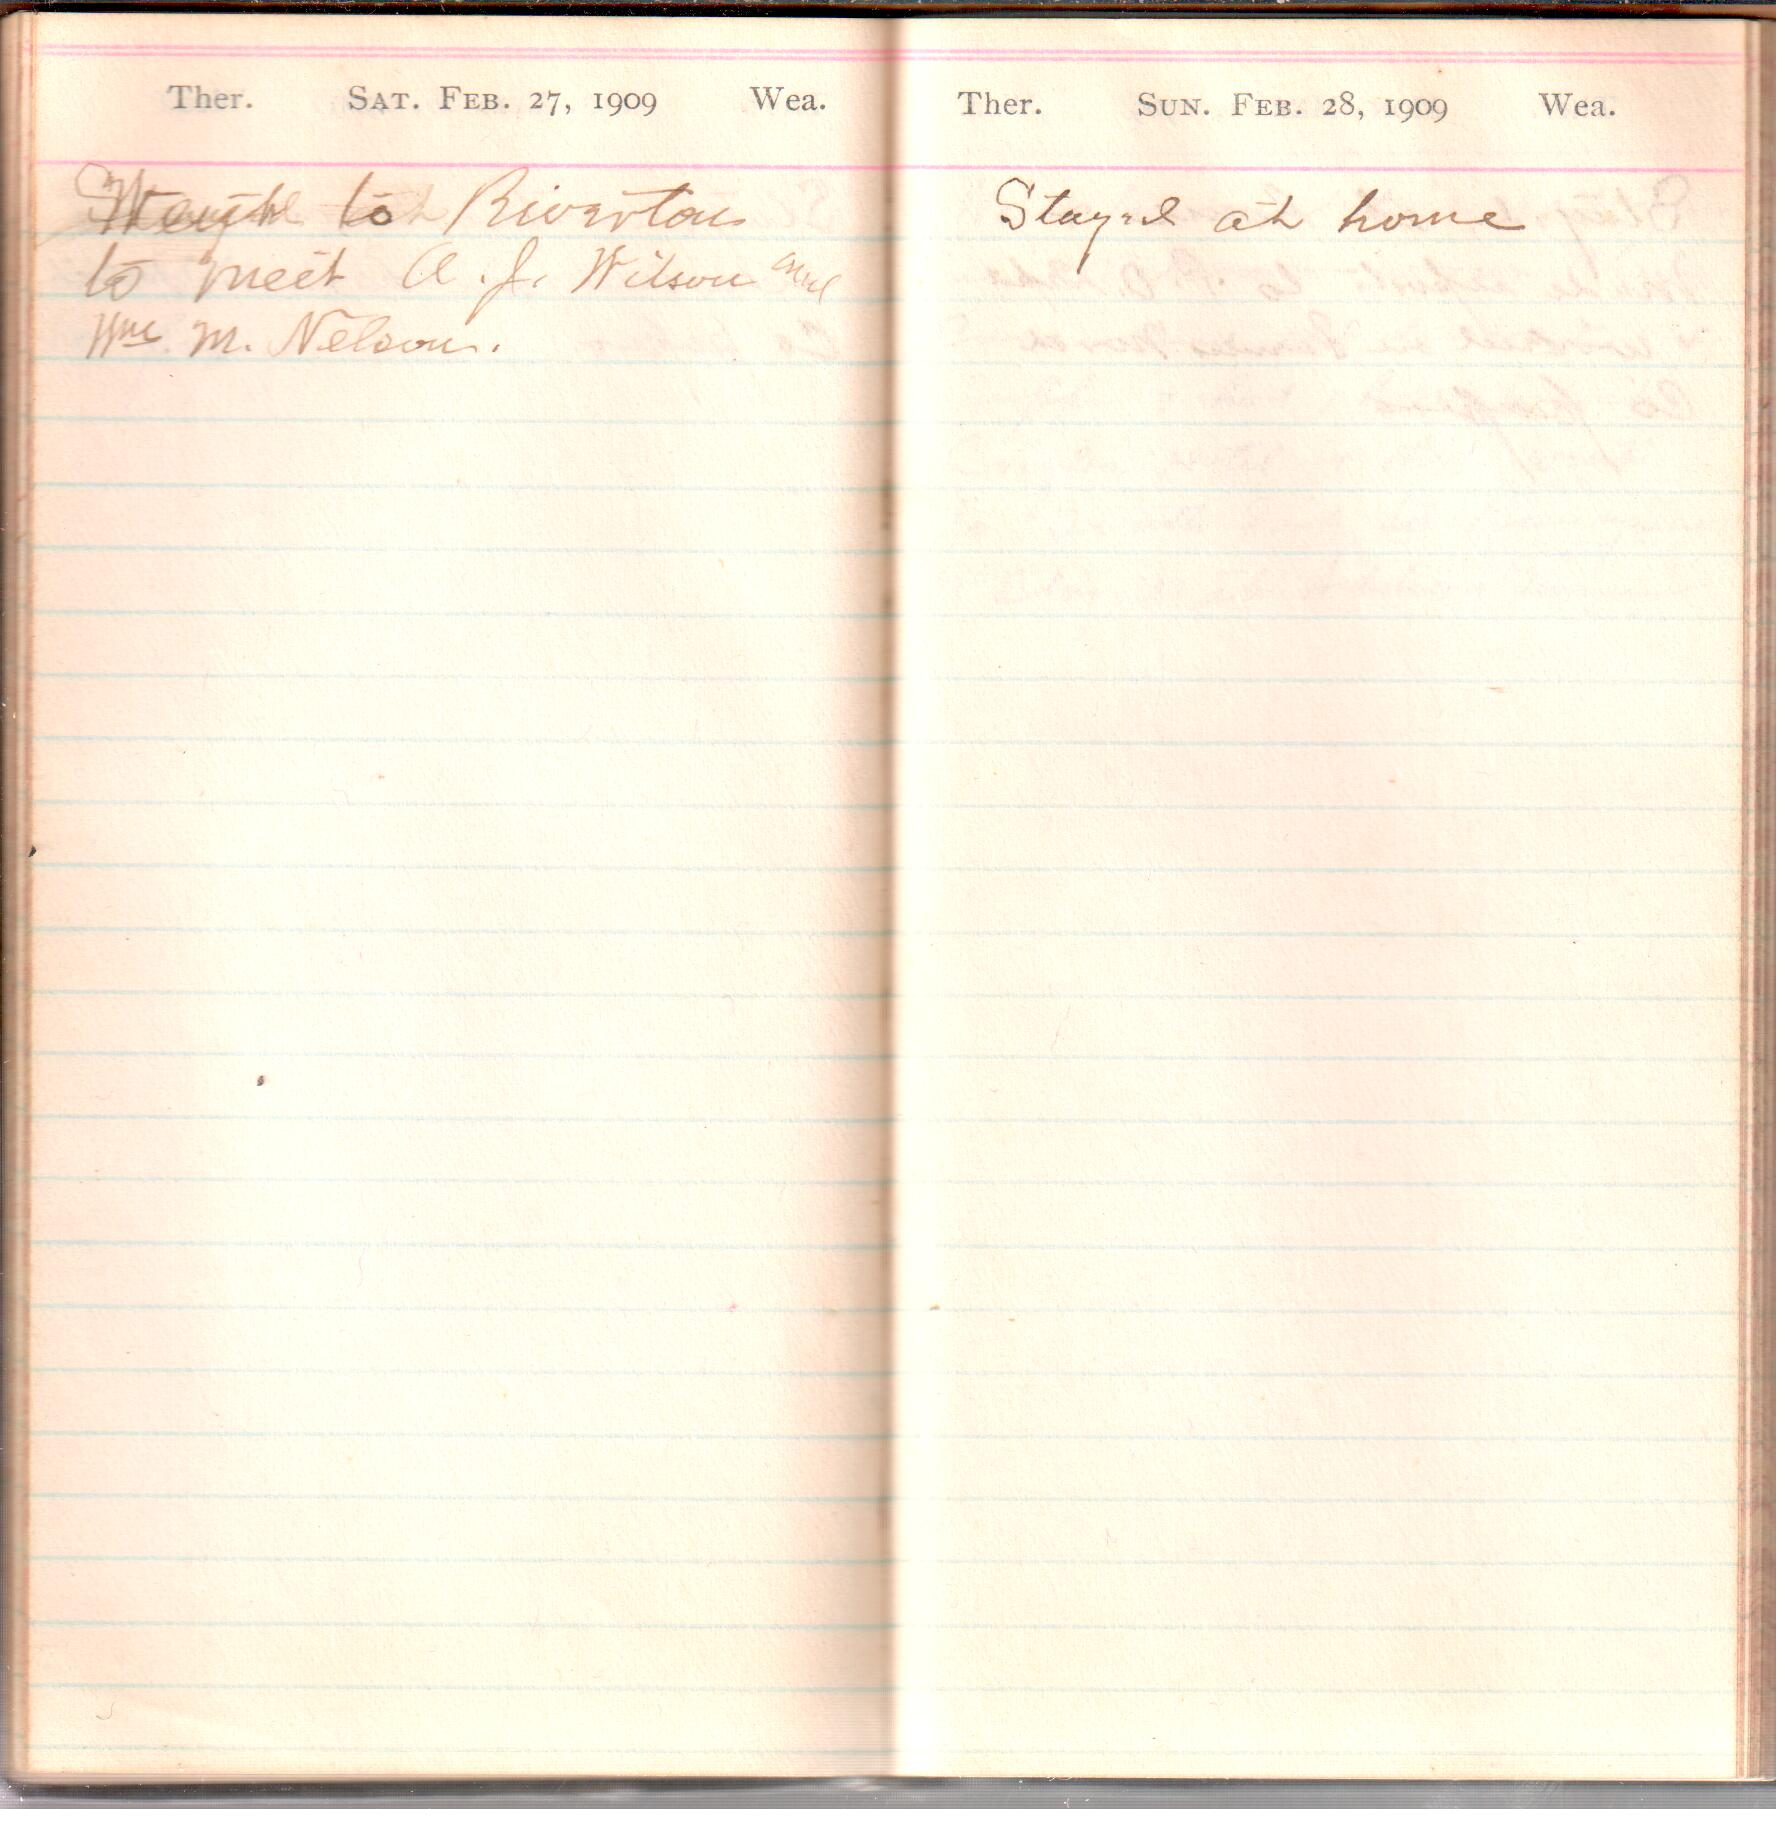 Ther. Sat. Feb. 27, 1909 Wea.
to Riverton
to meet A. J. Wilson and
Wm M. Nelson.
Ther. Sun. Feb. 28, 1909 Wea.
Stayed at home